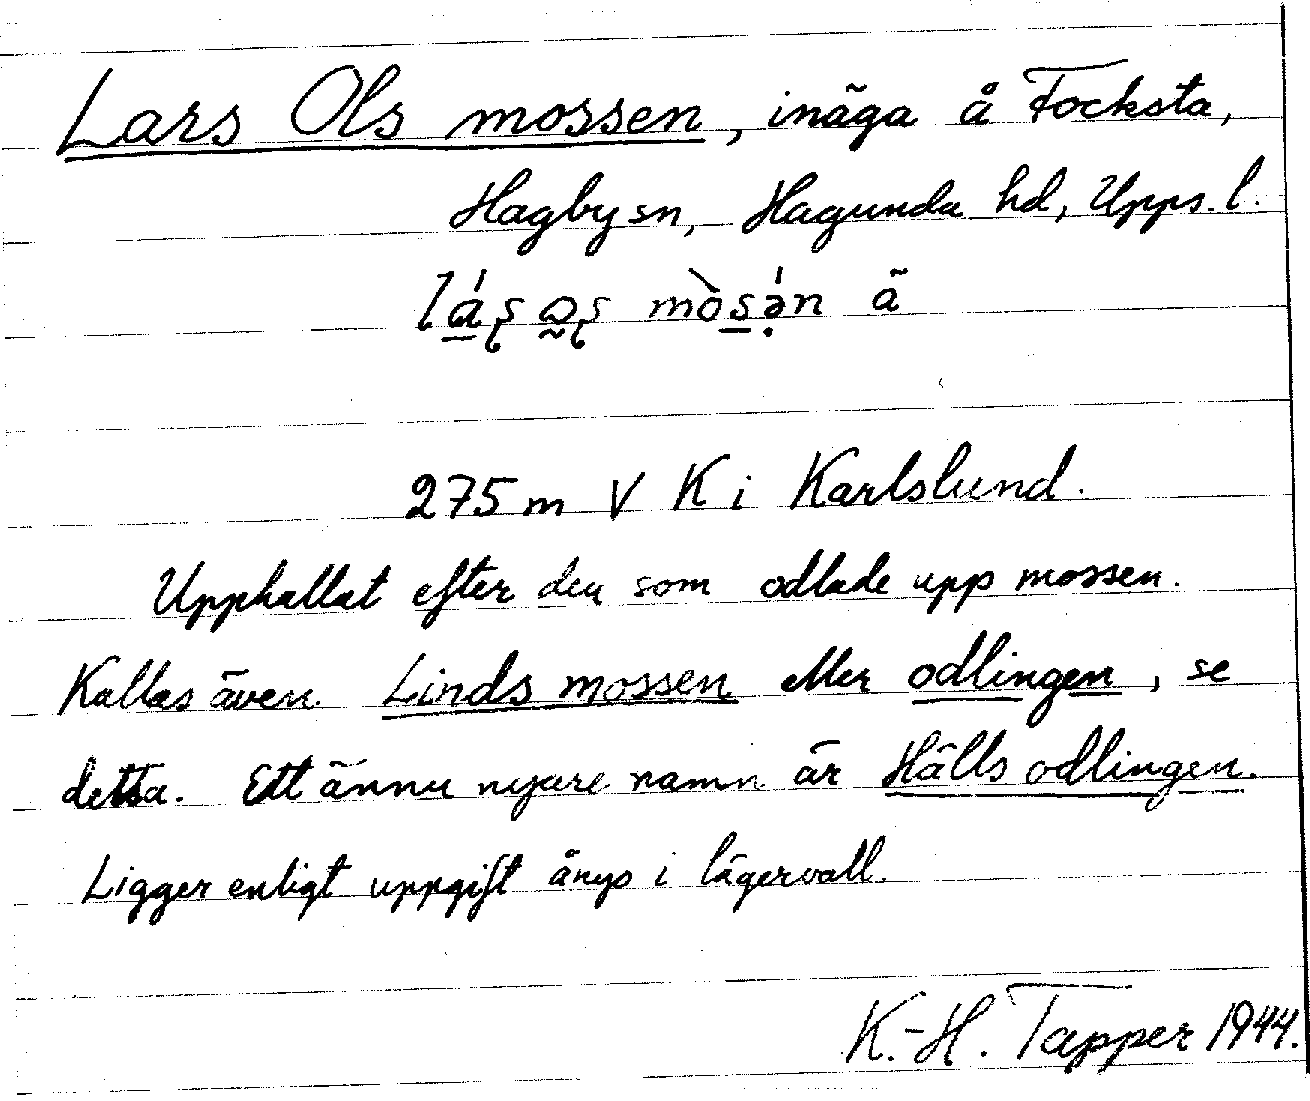 Lars Ols mossen, inäga å Focksta,
Hagby sn, Hagunda hd, Upps. l.
mòsə̣́n ã
275 m V K i Karlslund.
Uppkallat efter den som odlade upp mossen.
Kallas även Linds mossen eller odlingen, se
detta. Ett ännu nyare namn är Hälls odlingen.
Ligger enligt uppgift ånyo i lägervall.
K.-H. Tapper 1944.